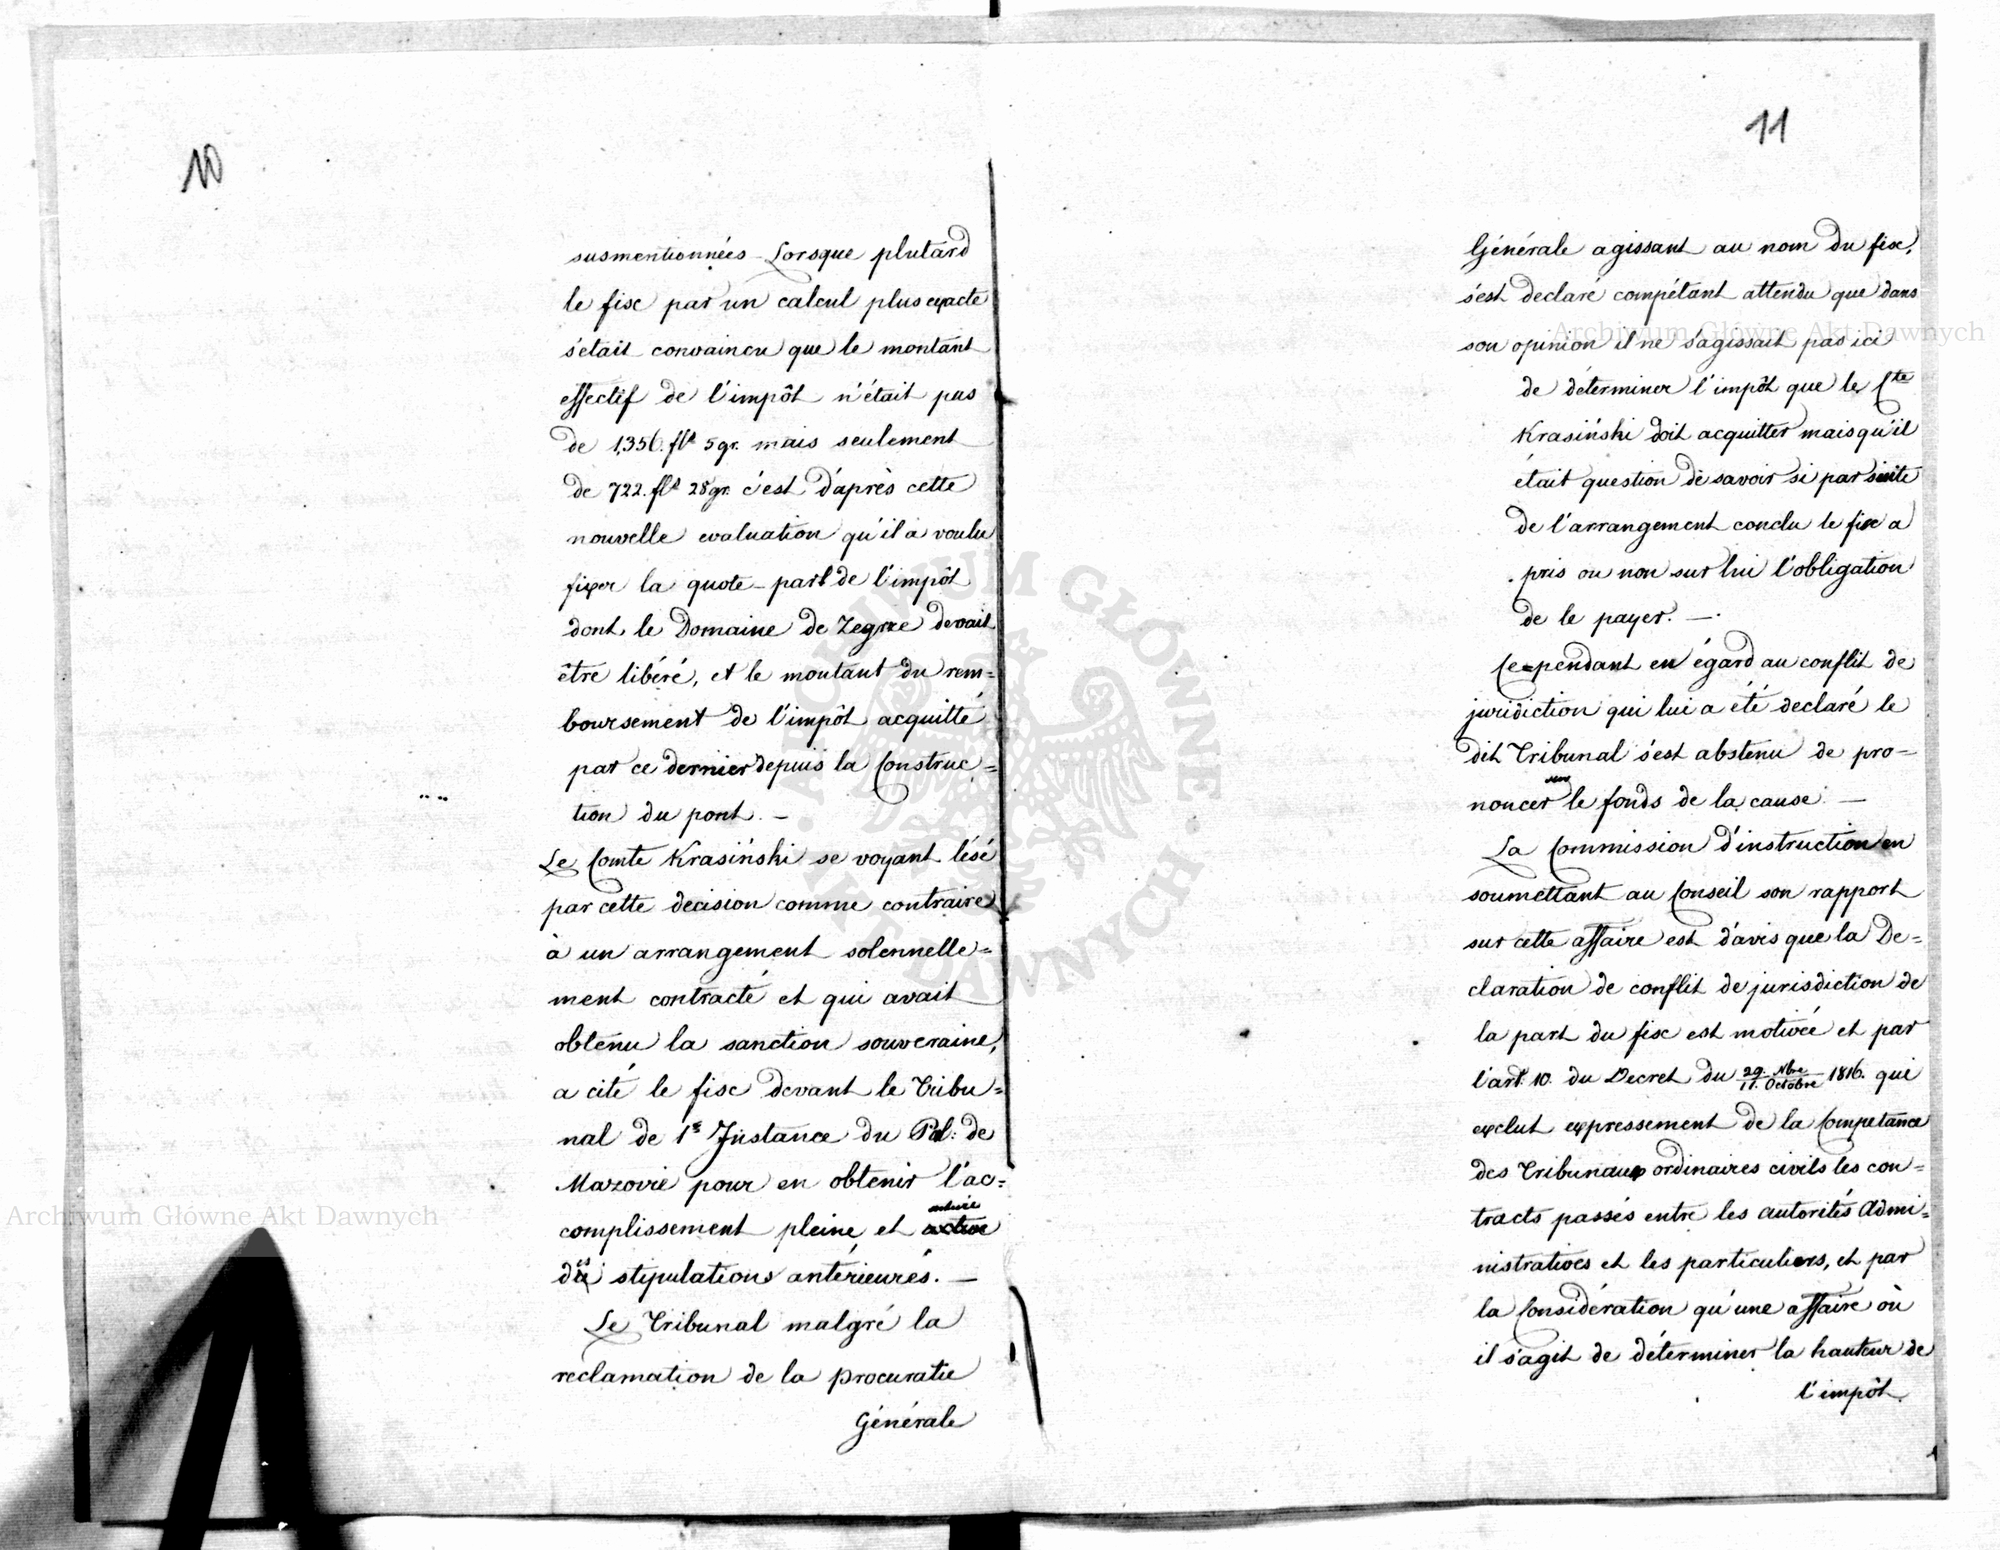 10
susmentionnées Lorsque plutard
le fisc par un calcul plus exacte
s'etait convaincu que le montant
effectif de l'impôt n'était pas
de 1,356. fls 5 gr. mais seulement
de 722. fls 28 gr. c'est d'après cette
nouvelle evaluation qu'il a voulu
fixer la quote-part de l'impôt
dont le Domaine de Zegrze devait
être libéré, et le montant du rem=
boursement de l'impôt acquitté
par ce dernier depuis la Construc=
tion du pont. —
Le Comte Krasiński se voyant lésé
par cette decision comme contraire
à un arrangement solennelle=
ment contracté et qui avait
obtenu la sanction souveraine,
a cité le fisc devant le Tribu=
nal de 1e Instance du Pal: de
Mazovie pour en obtenir l'ac=
complissement pleine et entière
des stipulations antérieures. —
Le Tribunal malgré la
reclamation de la procuratie
Générale
11
Générale agissant au nom du fisc,
s'est declaré compétant attendu que dans
son opinion il ne s'agissait pas ici
de déterminer l'impôt que le Cte
Krasiński doit acquitter mais qu'il
était question de savoir si par suite
de l'arrangement conclu le fisc a
pris ou non sur lui l'obligation
de le payer. —.
Cependant eu égard au conflit de
juridiction qui lui a été declaré le
dit Tribunal s'est abstenu de pro-
noncer sur le fonds de la cause. —
La Commission d'instruction en
soumettant au Conseil son rapport
sur cette affaire est d'avis que la De=
claration de conflit de jurisdiction de
la part du fisc est motivée et par
l'art. 10. du Decret du 29. Nbre / 11. Octobre 1816. qui
exclut expressement de la Competance
des Tribunaux ordinaires civils les con=
tracts passés entre les autorités Admi=
nistratives et les particuliers, et par
la Considération qu'une affaire où
il s'agit de déterminer la hauteur de
l'impôt
Archiwum Główne Akt Dawnych
Archiwum Główne Akt Dawnych
ARCHIWUM GŁÓWNE AKT DAWNYCH